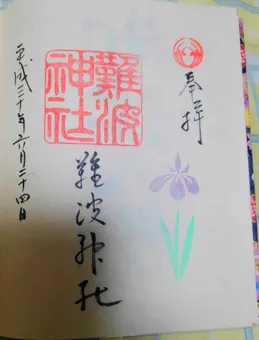 奉拝
難波
神社
難波神社
平成三十年六月二十四日